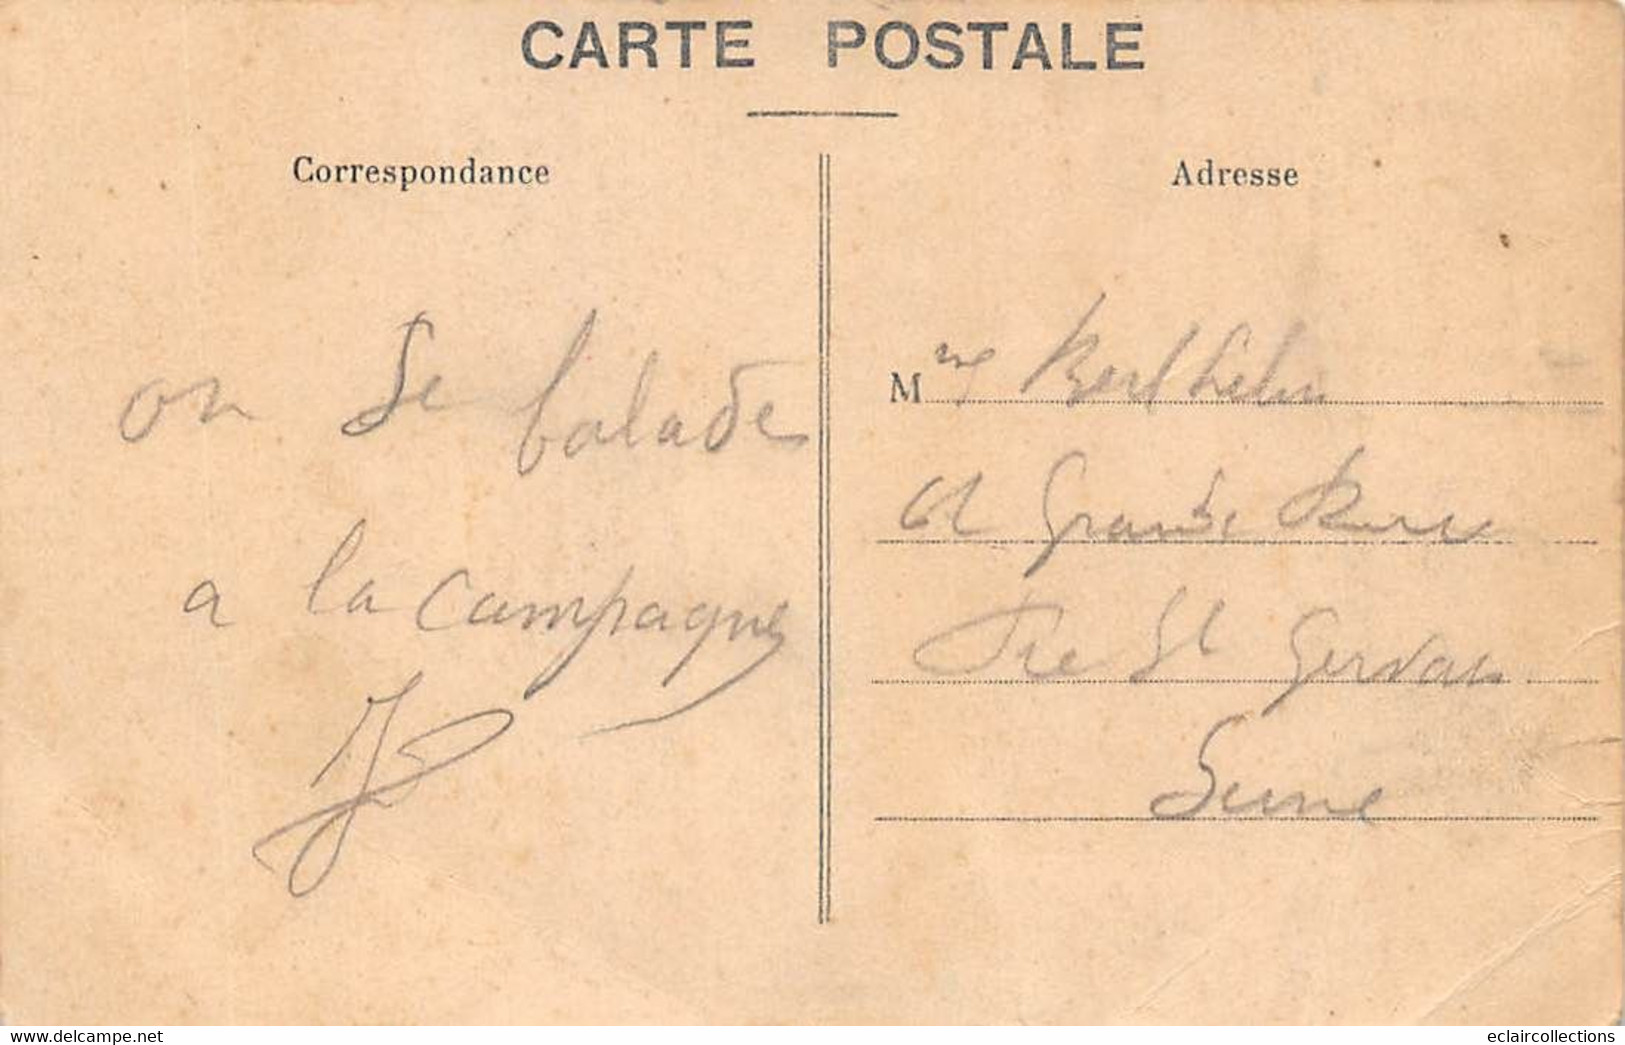 CARTE POSTALE
Correspondance
Adresse
on se balade
a la campagne
Mme Berthelin
61 Grande Rue
Pré St Gervais
Seine
www.delcampe.net
eclaircollections